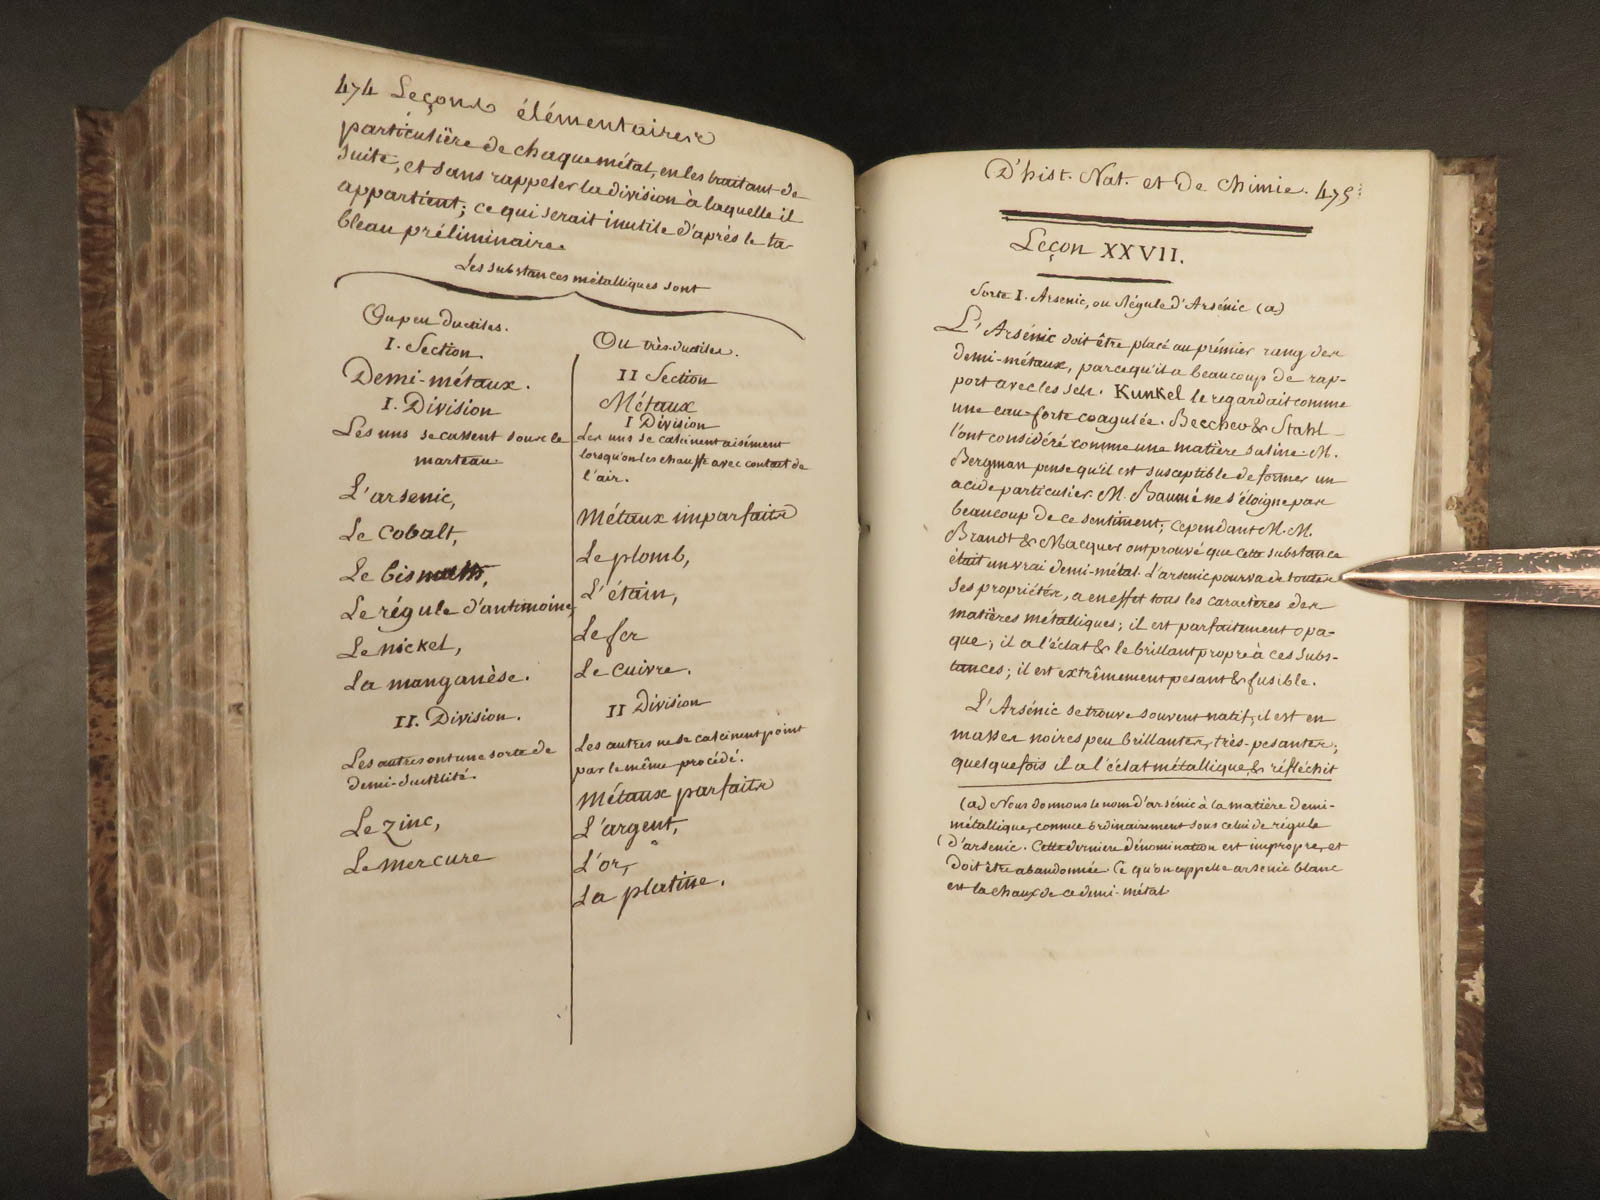 474 Leçons élémentaires
particulière de chaque métal, en les traitant de
suite, et sans rappeler la division à laquelle il
appartient; ce qui serait inutile d'après le ta-
bleau préliminaire.
Les substances métalliques sont
Ou peu ductiles.
I. Section.
Demi-métaux.
I. Division
Les uns se cassent sous le
marteau.
L'arsenic,
Le cobalt,
Le bismuth,
Le régule d'antimoine,
Le nickel,
La manganèse.
II. Division.
Les autres ont une sorte de
demi-ductilité.
Le zinc,
Le mercure
Ou très-ductiles.
II Section
Métaux
I Division
Les uns se calcinent aisément
lorsqu'on les chauffe avec contact de
l'air.
Métaux imparfaits
Le plomb,
L'étain,
Le fer
Le cuivre.
II Division
Les autres ne se calcinent point
par le même procédé.
Métaux parfaits
L'argent,
L'or,
La platine.
D'hist. Nat. et de chimie. 475
Leçon XXVII.
Sorte I. Arsenic, ou Régule d'Arsénic (a)
L'Arsénic doit être placé au prémier rang des
demi-métaux, parcequ'il a beaucoup de rap-
port avec les sels. Kunkel le regardait comme
une eau-forte coagulée. Beccher & Stahl
l'ont considéré comme une matière saline. M.
Bergman pense qu'il est susceptible de former un
acide particulier. M. Baumé ne s'éloigne pas
beaucoup de ce sentiment; cependant M. M.
Brandt & Macquer ont prouvé que cette substance
était un vrai demi-métal. L'arsenic pourvu de toutes
ses propriétés, a en effet tous les caractères des
matières métalliques; il est parfaitement opa-
que; il a l'éclat & le brillant propre à ces subs-
tances; il est extrêmement pesant & fusible.
L'Arsénic se trouve souvent natif; il est en
masses noires peu brillantes, très-pesantes;
quelquefois il a l'éclat métallique, & réfléchit
(a) Nous donnons le nom d'arsénic à la matière demi-
métallique, connue ordinairement sous celui de régule
d'arsenic. Cette derniere dénomination est impropre, et
doit être abandonnée. Ce qu'on appelle arsenic blanc
est la chaux de ce demi-métal